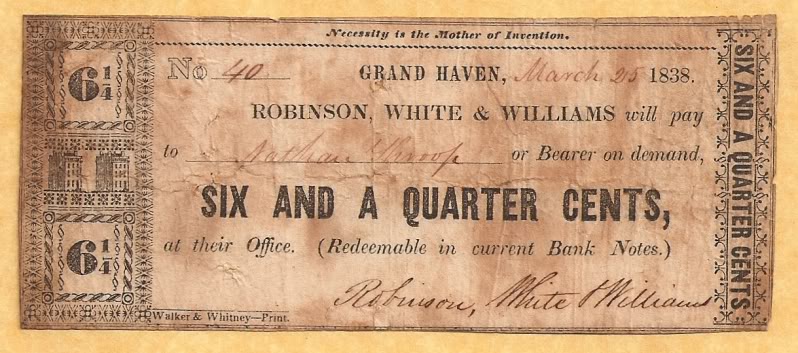 Necessity is the Mother of Invention.
6 1/4
No 40 GRAND HAVEN, March 25 1838.
ROBINSON, WHITE & WILLIAMS will pay
to Nathan Throop or Bearer on demand,
SIX AND A QUARTER CENTS,
6 1/4
at their Office. (Redeemable in current Bank Notes.)
Robinson, White & Williams
Walker & Whitney—Print.
SIX AND A QUARTER CENTS